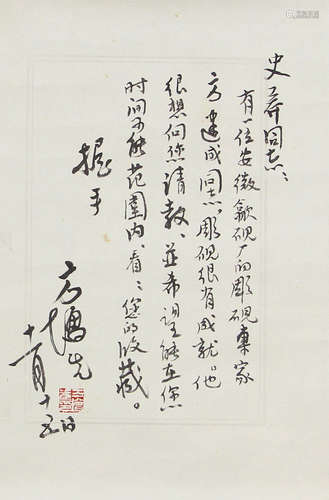 史莽同志：
有一位安徽歙砚厂的雕砚专家
方建成同志，雕砚很有成就。他
很想向您请教、並希望能在您
时间可能范围内、看看您的收藏。
握手
方博先
十一月十五日